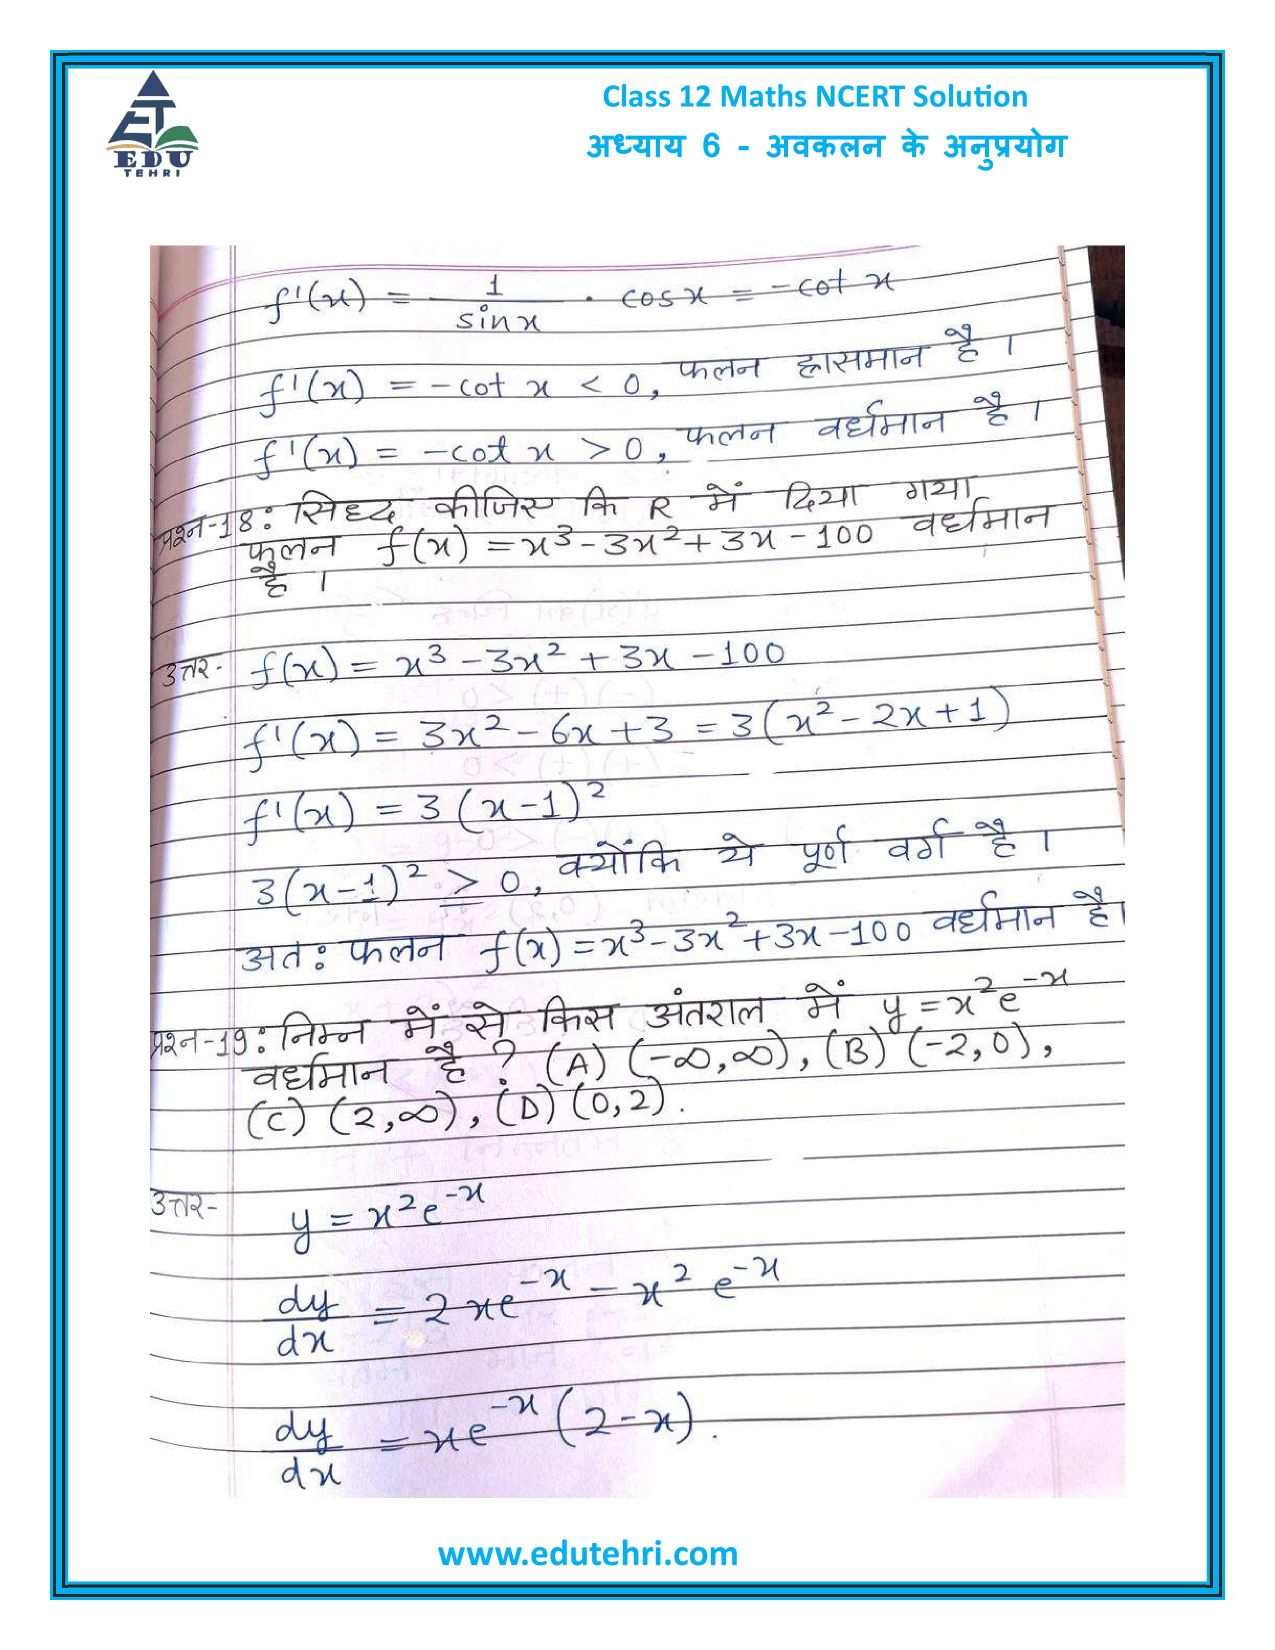 ET
EDU
TEHRI
Class 12 Maths NCERT Solution
अध्याय 6 - अवकलन के अनुप्रयोग
f'(x) = 1/sinx · cosx = -cot x
f'(x) = -cot x < 0, फलन ह्रासमान है ।
f'(x) = -cot x > 0, फलन वर्धमान है ।
प्रश्न-18: सिध्द कीजिए कि R में दिया गया
फलन f(x) = x³ - 3x² + 3x - 100 वर्धमान
है ।
उत्तर- f(x) = x³ - 3x² + 3x - 100
f'(x) = 3x² - 6x + 3 = 3(x² - 2x + 1)
f'(x) = 3(x-1)²
3(x-1)² ≥ 0, क्योंकि ये पूर्ण वर्ग है ।
अतः फलन f(x) = x³ - 3x² + 3x - 100 वर्धमान है।
प्रश्न-19: निम्न में से किस अंतराल में y = x²e⁻ˣ
वर्धमान है ? (A) (-∞,∞), (B) (-2,0),
(C) (2,∞), (D) (0,2).
उत्तर- y = x²e⁻ˣ
dy/dx = 2xe⁻ˣ - x² e⁻ˣ
dy/dx = xe⁻ˣ (2-x).
www.edutehri.com